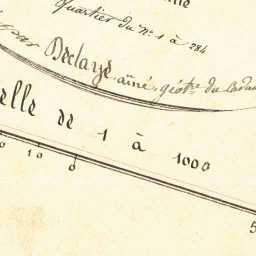 Quartier du N.º 1 à 284
par Declaye, aîné, géot.re du Cadas
elle de 1 à 1000
10 0
5